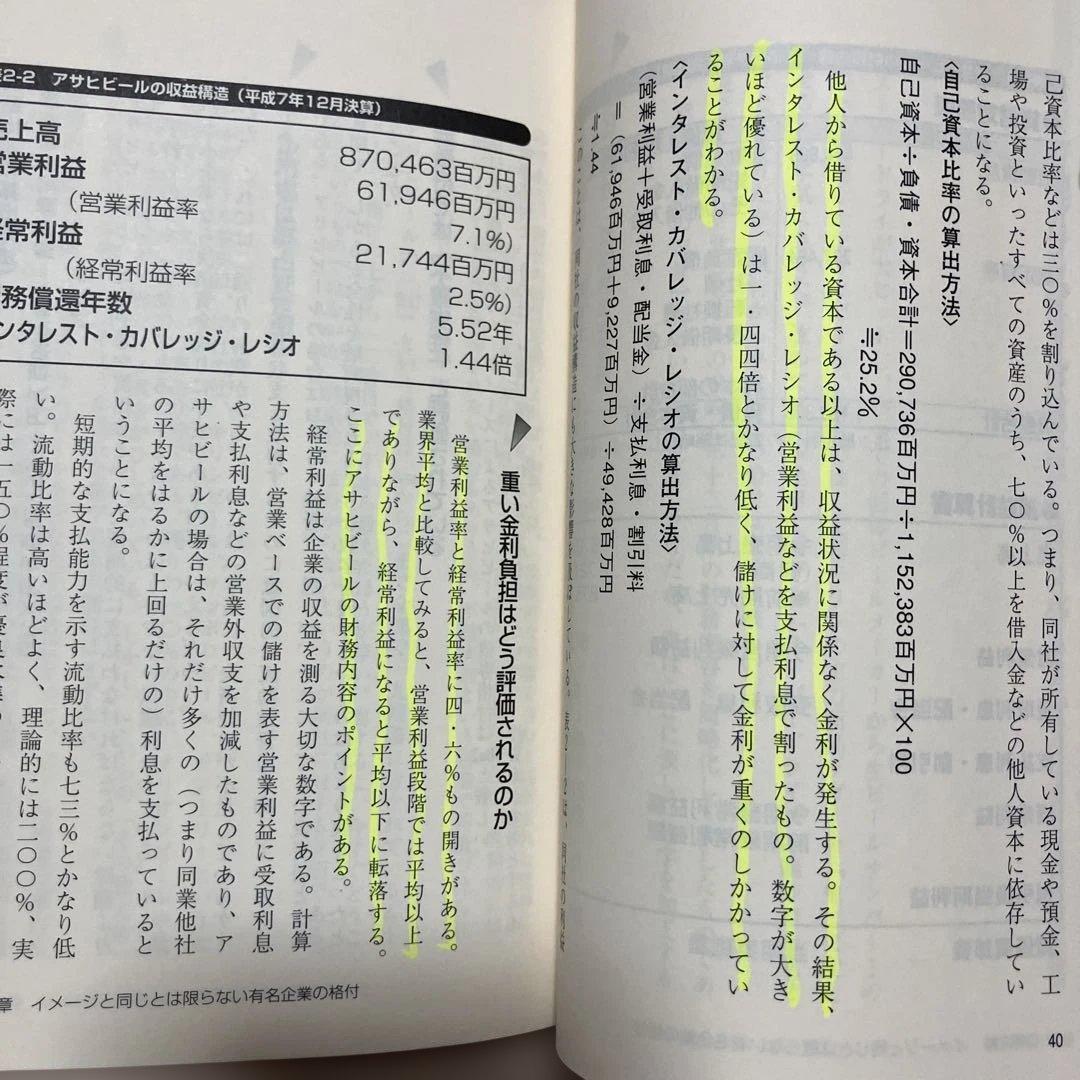 己資本比率などは三〇%を割り込んでいる。つまり、同社が所有している現金や預金、工
場や投資といったすべての資産のうち、七〇%以上を借入金などの他人資本に依存してい
ることになる。
〈自己資本比率の算出方法〉
自己資本÷負債・資本合計＝290,736百万円÷1,152,383百万円×100
≒25.2%
他人から借りている資本である以上は、収益状況に関係なく金利が発生する。その結果、
インタレスト・カバレッジ・レシオ（営業利益などを支払利息で割ったもの。数字が大き
いほど優れている）は一・四四倍とかなり低く、儲けに対して金利が重くのしかかってい
ることがわかる。
〈インタレスト・カバレッジ・レシオの算出方法〉
（営業利益＋受取利息・配当金）÷支払利息・割引料
＝（61,946百万円＋9,227百万円）÷49,428百万円
≒1.44
このことは、同社の収益構造にも大きな影響を
40
表2-2 アサヒビールの収益構造（平成7年12月決算）
売上高 870,463百万円
営業利益 61,946百万円
（営業利益率 7.1%）
経常利益 21,744百万円
（経常利益率 2.5%）
務償還年数 5.52年
ンタレスト・カバレッジ・レシオ 1.44倍
重い金利負担はどう評価されるのか
営業利益率と経常利益率に四・六%もの開きがある。
業界平均と比較してみると、営業利益段階では平均以上
でありながら、経常利益になると平均以下に転落する。
ここにアサヒビールの財務内容のポイントがある。
経常利益は企業の収益を測る大切な数字である。計算
方法は、営業ベースでの儲けを表す営業利益に受取利息
や支払利息などの営業外収支を加減したものであり、ア
サヒビールの場合は、それだけ多くの（つまり同業他社
の平均をはるかに上回るだけの）利息を支払っていると
いうことになる。
短期的な支払能力を示す流動比率も七三%とかなり低
い。流動比率は高いほどよく、理論的には二〇〇%、実
際には一五〇%程度が優良企業の
章 イメージと同じとは限らない有名企業の格付